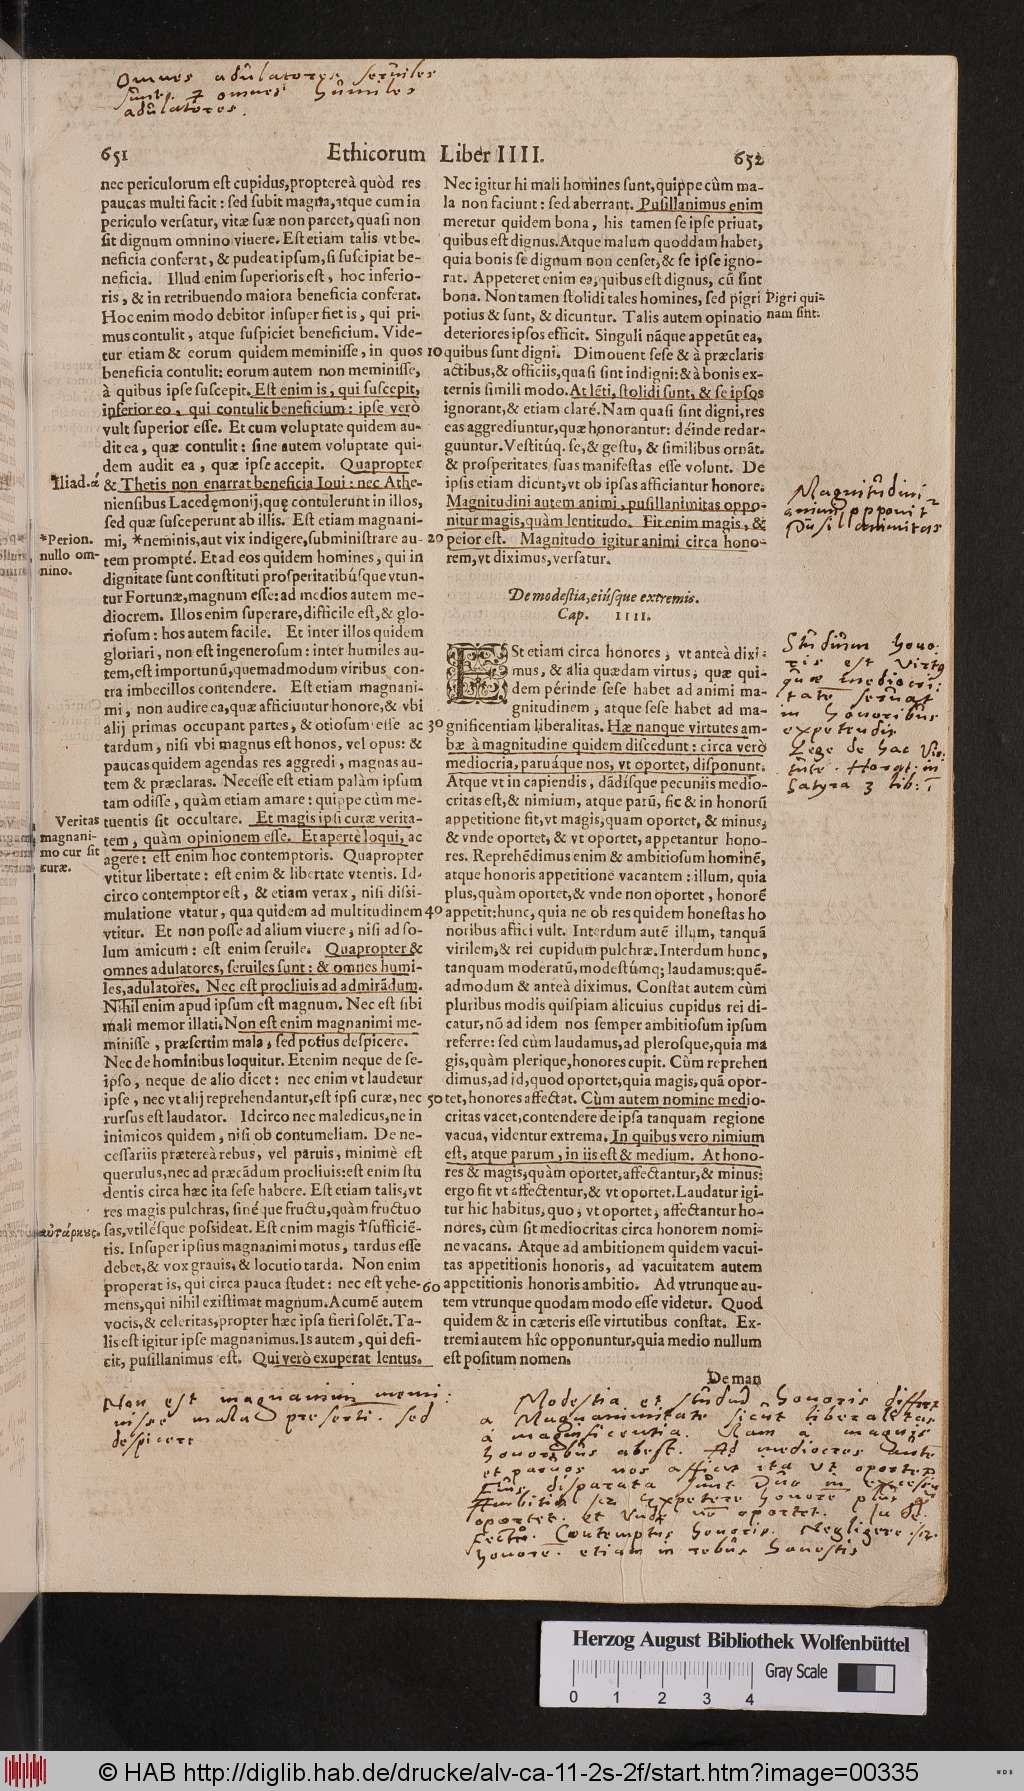 Omnes adûlatores serûiles
sûnt, et omnes hûmiles
adûlatores.
651
Ethicorum Liber IIII.
652
nec periculorum est cupidus, proptereà quòd res
paucas multi facit: sed subit magna, atque cum in
periculo versatur, vitæ suæ non parcet, quasi non
sit dignum omnino viuere. Est etiam talis vt be-
neficia conferat, & pudeat ipsum, si suscipiat be-
neficia. Illud enim superioris est, hoc inferio-
ris, & in retribuendo maiora beneficia conferat.
Hoc enim modo debitor insuper fiet is, qui pri-
mus contulit, atque suspiciet beneficium. Vide-
tur etiam & eorum quidem meminisse, in quos
beneficia contulit: eorum autem non meminisse,
à quibus ipse suscepit. Est enim is, qui suscepit,
inferior eo, qui contulit beneficium: ipse verò
vult superior esse. Et cum voluptate quidem au-
dit ea, quæ contulit: sine autem voluptate qui-
dem audit ea, quæ ipse accepit. Quapropter
Iliad.á
& Thetis non enarrat beneficia Ioui: nec Athe-
niensibus Lacedęmonij, quę contulerunt in illos,
sed quæ susceperunt ab illis. Est etiam magnani-
*Perion.
nullo om-
nino.
mi, *neminis, aut vix indigere, subministrare au-
tem promptè. Et ad eos quidem homines, qui in
dignitate sunt constituti prosperitatibúsque vtun-
tur Fortunæ, magnum esse: ad medios autem me-
diocrem. Illos enim superare, difficile est, & glo-
riosum: hos autem facile. Et inter illos quidem
gloriari, non est ingenerosum: inter humiles au-
tem, est importunũ, quemadmodum viribus con-
tra imbecillos contendere. Est etiam magnani-
mi, non audire ea, quæ afficiuntur honore, & vbi
alij primas occupant partes, & otiosum esse ac
tardum, nisi vbi magnus est honos, vel opus: &
paucas quidem agendas res aggredi, magnas au-
tem & præclaras. Necesse est etiam palàm ipsum
tam odisse, quàm etiam amare: quippe cùm me-
Veritas
magnani-
mo cur sit
curæ.
tuentis sit occultare. Et magis ipsi curæ verita-
tem, quàm opinionem esse. Et apertè loqui, ac
agere: est enim hoc contemptoris. Quapropter
vtitur libertate: est enim & libertate vtentis. Id-
circo contemptor est, & etiam verax, nisi dissi-
mulatione vtatur, qua quidem ad multitudinem
vtitur. Et non posse ad alium viuere, nisi ad so-
lum amicum: est enim seruile. Quapropter &
omnes adulatores, seruiles sunt: & omnes humi-
les, adulatores. Nec est procliuis ad admirãdum.
Nihil enim apud ipsum est magnum. Nec est sibi
mali memor illati. Non est enim magnanimi me-
minisse, præsertim mala, sed potius despicere.
Nec de hominibus loquitur. Etenim neque de se-
ipso, neque de alio dicet: nec enim vt laudetur
ipse, nec vt alij reprehendantur, est ipsi curæ, nec
rursus est laudator. Idcirco nec maledicus, ne in
inimicos quidem, nisi ob contumeliam. De ne-
cessariis prætereà rebus, vel paruis, minimè est
querulus, nec ad precãdum procliuis: est enim stu
dentis circa hæc ita sese habere. Est etiam talis, vt
res magis pulchras, sinéque fructu, quàm fructuo
αὐτάρκης.
sas, vtilésque possideat. Est enim magis †sufficiẽ-
tis. Insuper ipsius magnanimi motus, tardus esse
debet, & vox grauis, & locutio tarda. Non enim
properat is, qui circa pauca studet: nec est vehe-
mens, qui nihil existimat magnum. Acumẽ autem
vocis, & celeritas, propter hæc ipsa fieri solẽt. Ta-
lis est igitur ipse magnanimus. Is autem, qui defi-
cit, pusillanimus est. Qui verò exuperat lentus.
Non est magnanimi memi-
nisse mala presertĩ. sed
despicere
10
20
30
40
50
60
Nec igitur hi mali homines sunt, quippe cùm ma-
la non faciunt: sed aberrant. Pusillanimus enim
meretur quidem bona, his tamen se ipse priuat,
quibus est dignus. Atque malum quoddam habet,
quia bonis se dignum non censet, & se ipse igno-
rat. Appeteret enim ea, quibus est dignus, cũ sint
bona. Non tamen stolidi tales homines, sed pigri
Pigri qui-
nam sint.
potius & sunt, & dicuntur. Talis autem opinatio
deteriores ipsos efficit. Singuli nãque appetũt ea,
quibus sunt digni. Dimouent sese & à præclaris
actibus, & officiis, quasi sint indigni: & à bonis ex-
ternis simili modo. At lẽti, stolidi sunt, & se ipsos
ignorant, & etiam clarè. Nam quasi sint digni, res
eas aggrediuntur, quæ honorantur: déinde redar-
guuntur. Vestitúq. se, & gestu, & similibus ornãt.
& prosperitates suas manifestas esse volunt. De
ipsis etiam dicunt, vt ob ipsas afficiantur honore.
Magnitudini autem animi, pusillanimitas oppo-
nitur magis, quàm lentitudo. Fit enim magis, &
peior est. Magnitudo igitur animi circa hono-
rem, vt diximus, versatur.
Magnitûdini
animi opponit
Pûsillanimitas
De modestia, eiúsque extremis.
Cap. IIII.
Est etiam circa honores, vt anteà dixi-
mus, & alia quædam virtus, quæ qui-
dem périnde sese habet ad animi ma-
gnitudinem, atque sese habet ad ma-
gnificentiam liberalitas. Hæ nanque virtutes am-
bæ à magnitudine quidem discedunt: circa verò
mediocria, paruáque nos, vt oportet, disponunt.
Atque vt in capiendis, dãdísque pecuniis medio-
critas est, & nimium, atque parũ, sic & in honorũ
appetitione fit, vt magis, quam oportet, & minus,
& vnde oportet, & vt oportet, appetantur hono-
res. Reprehẽdimus enim & ambitiosum hominẽ,
atque honoris appetitione vacantem: illum, quia
plus, quàm oportet, & vnde non oportet, honorẽ
appetit: hunc, quia ne ob res quidem honestas ho
noribus affici vult. Interdum autẽ illum, tanquã
virilem, & rei cupidum pulchræ. Interdum hunc,
tanquam moderatũ, modestúmq; laudamus: quẽ-
admodum & anteà diximus. Constat autem cùm
pluribus modis quispiam alicuius cupidus rei di-
catur, nõ ad idem nos semper ambitiosum ipsum
referre: sed cùm laudamus, ad plerosque, quia ma
gis, quàm plerique, honores cupit. Cùm reprehen
dimus, ad id, quod oportet, quia magis, quã opor-
tet, honores affectat. Cùm autem nomine medio-
critas vacet, contendere de ipsa tanquam regione
vacua, videntur extrema. In quibus vero nimium
est, atque parum, in iis est & medium. At hono-
res & magis, quàm oportet, affectantur, & minus:
ergo fit vt affectentur, & vt oportet. Laudatur igi-
tur hic habitus, quo, vt oportet, affectantur ho-
nores, cùm sit mediocritas circa honorem nomi-
ne vacans. Atque ad ambitionem quidem vacui-
tas appetitionis honoris, ad vacuitatem autem
appetitionis honoris ambitio. Ad vtrunque au-
tem vtrunque quodam modo esse videtur. Quod
quidem & in cæteris esse virtutibus constat. Ex-
tremi autem hîc opponuntur, quia medio nullum
est positum nomen.
De man
Stûdiûm hono-
ris est virtûs
qûæ mediocri-
tatẽ serûat
in honoribûs
expetendis
Lege de hac Vir-
tûte. Horat. in
Satyra 3 lib. 1
Modestia et stûdiũ honoris differt
a Magnanimitate sicût liberalitas
a magnificentia. Nam a magnis
honoribûs abest. Ad mediocres aûtẽ
et parûos nos afficit ita ût oportet
Eiûs disparata sûnt dûo in excessû
Ambitio sc. expetere honorẽ plûs q̃
oportet. et ûnde nõ oportet. In de-
fectû. Contemptûs honoris. Negligere sc.
honorẽ. etiam in rebûs honestis
Herzog August Bibliothek Wolfenbüttel
Gray Scale
0 1 2 3 4
© HAB http://diglib.hab.de/drucke/alv-ca-11-2s-2f/start.htm?image=00335